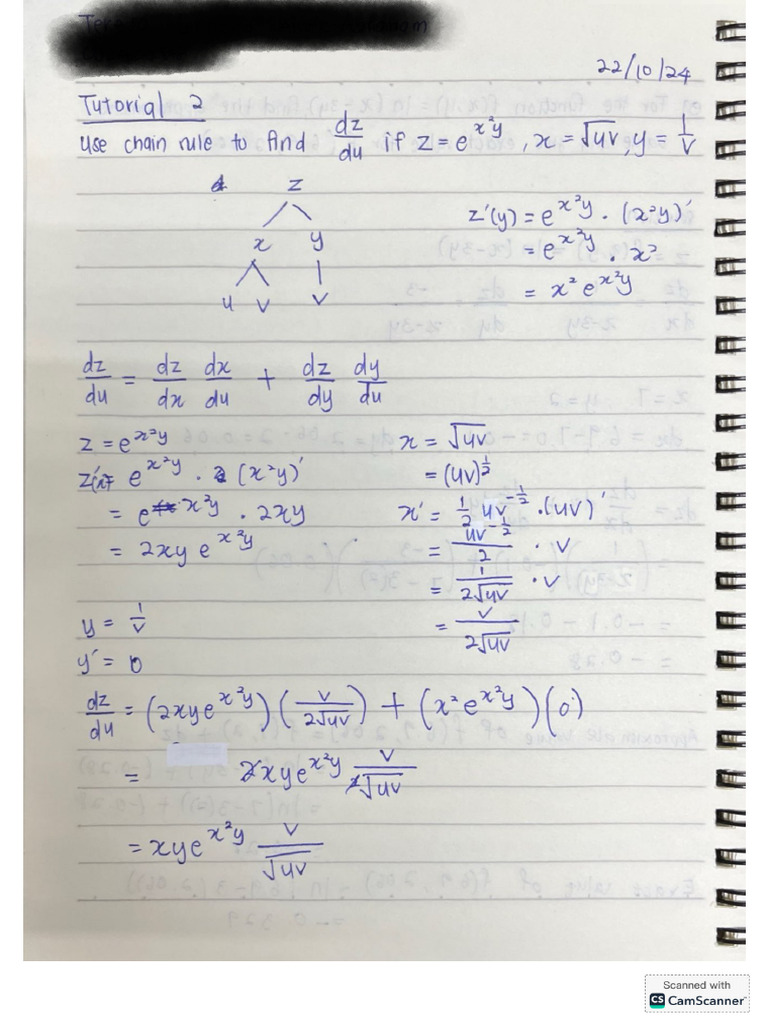 22/10/24
Tutorial 2
Use chain rule to find dz/du if z = e^x²y, x = √uv, y = 1/v
z
x y
u v v
z'(y) = e^x²y · (x²y)'
= e^x²y · x²
= x² e^x²y
dz/du = dz/dx dx/du + dz/dy dy/du
z = e^x²y
z'(x)= e^x²y · (x²y)'
= e^x²y · 2xy
= 2xy e^x²y
x = √uv
= (uv)^½
x' = ½ uv^-½ · (uv)'
= uv^-½/2 · v
= 1/2√uv · v
= v/2√uv
y = 1/v
y' = 0
dz/du = (2xye^x²y)(v/2√uv) + (x²e^x²y)(0)
= 2xye^x²y v/2√uv
= xye^x²y v/√uv
Scanned with
CS CamScanner